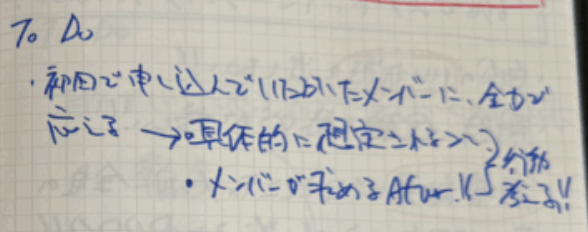 To Do
・初回で申し込んでいただいたメンバーに、全力で
応える → ・具体的に想定される
・メンバーが求めるAfter
考える!!